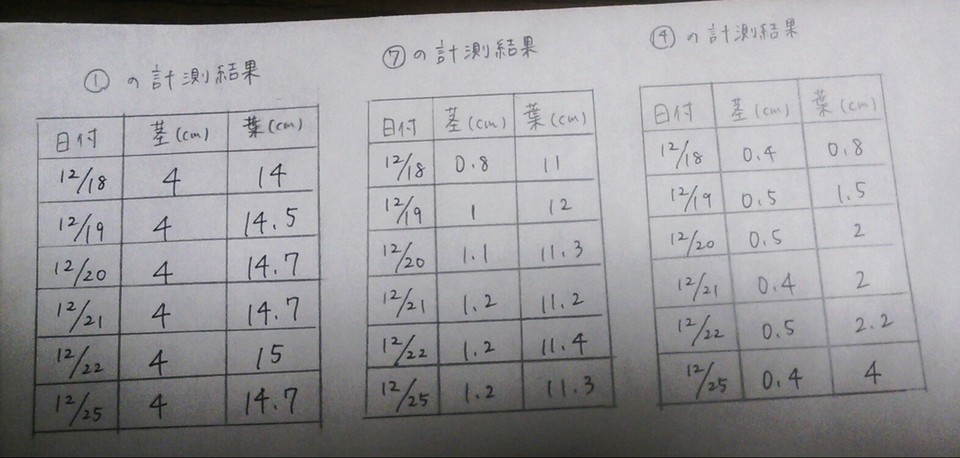 ①の計測結果
日付 茎(cm) 葉(cm)
12/18 4 14
12/19 4 14.5
12/20 4 14.7
12/21 4 14.7
12/22 4 15
12/25 4 14.7
⑦の計測結果
日付 茎(cm) 葉(cm)
12/18 0.8 11
12/19 1 12
12/20 1.1 11.3
12/21 1.2 11.2
12/22 1.2 11.4
12/25 1.2 11.3
④の計測結果
日付 茎(cm) 葉(cm)
12/18 0.4 0.8
12/19 0.5 1.5
12/20 0.5 2
12/21 0.4 2
12/22 0.5 2.2
12/25 0.4 4